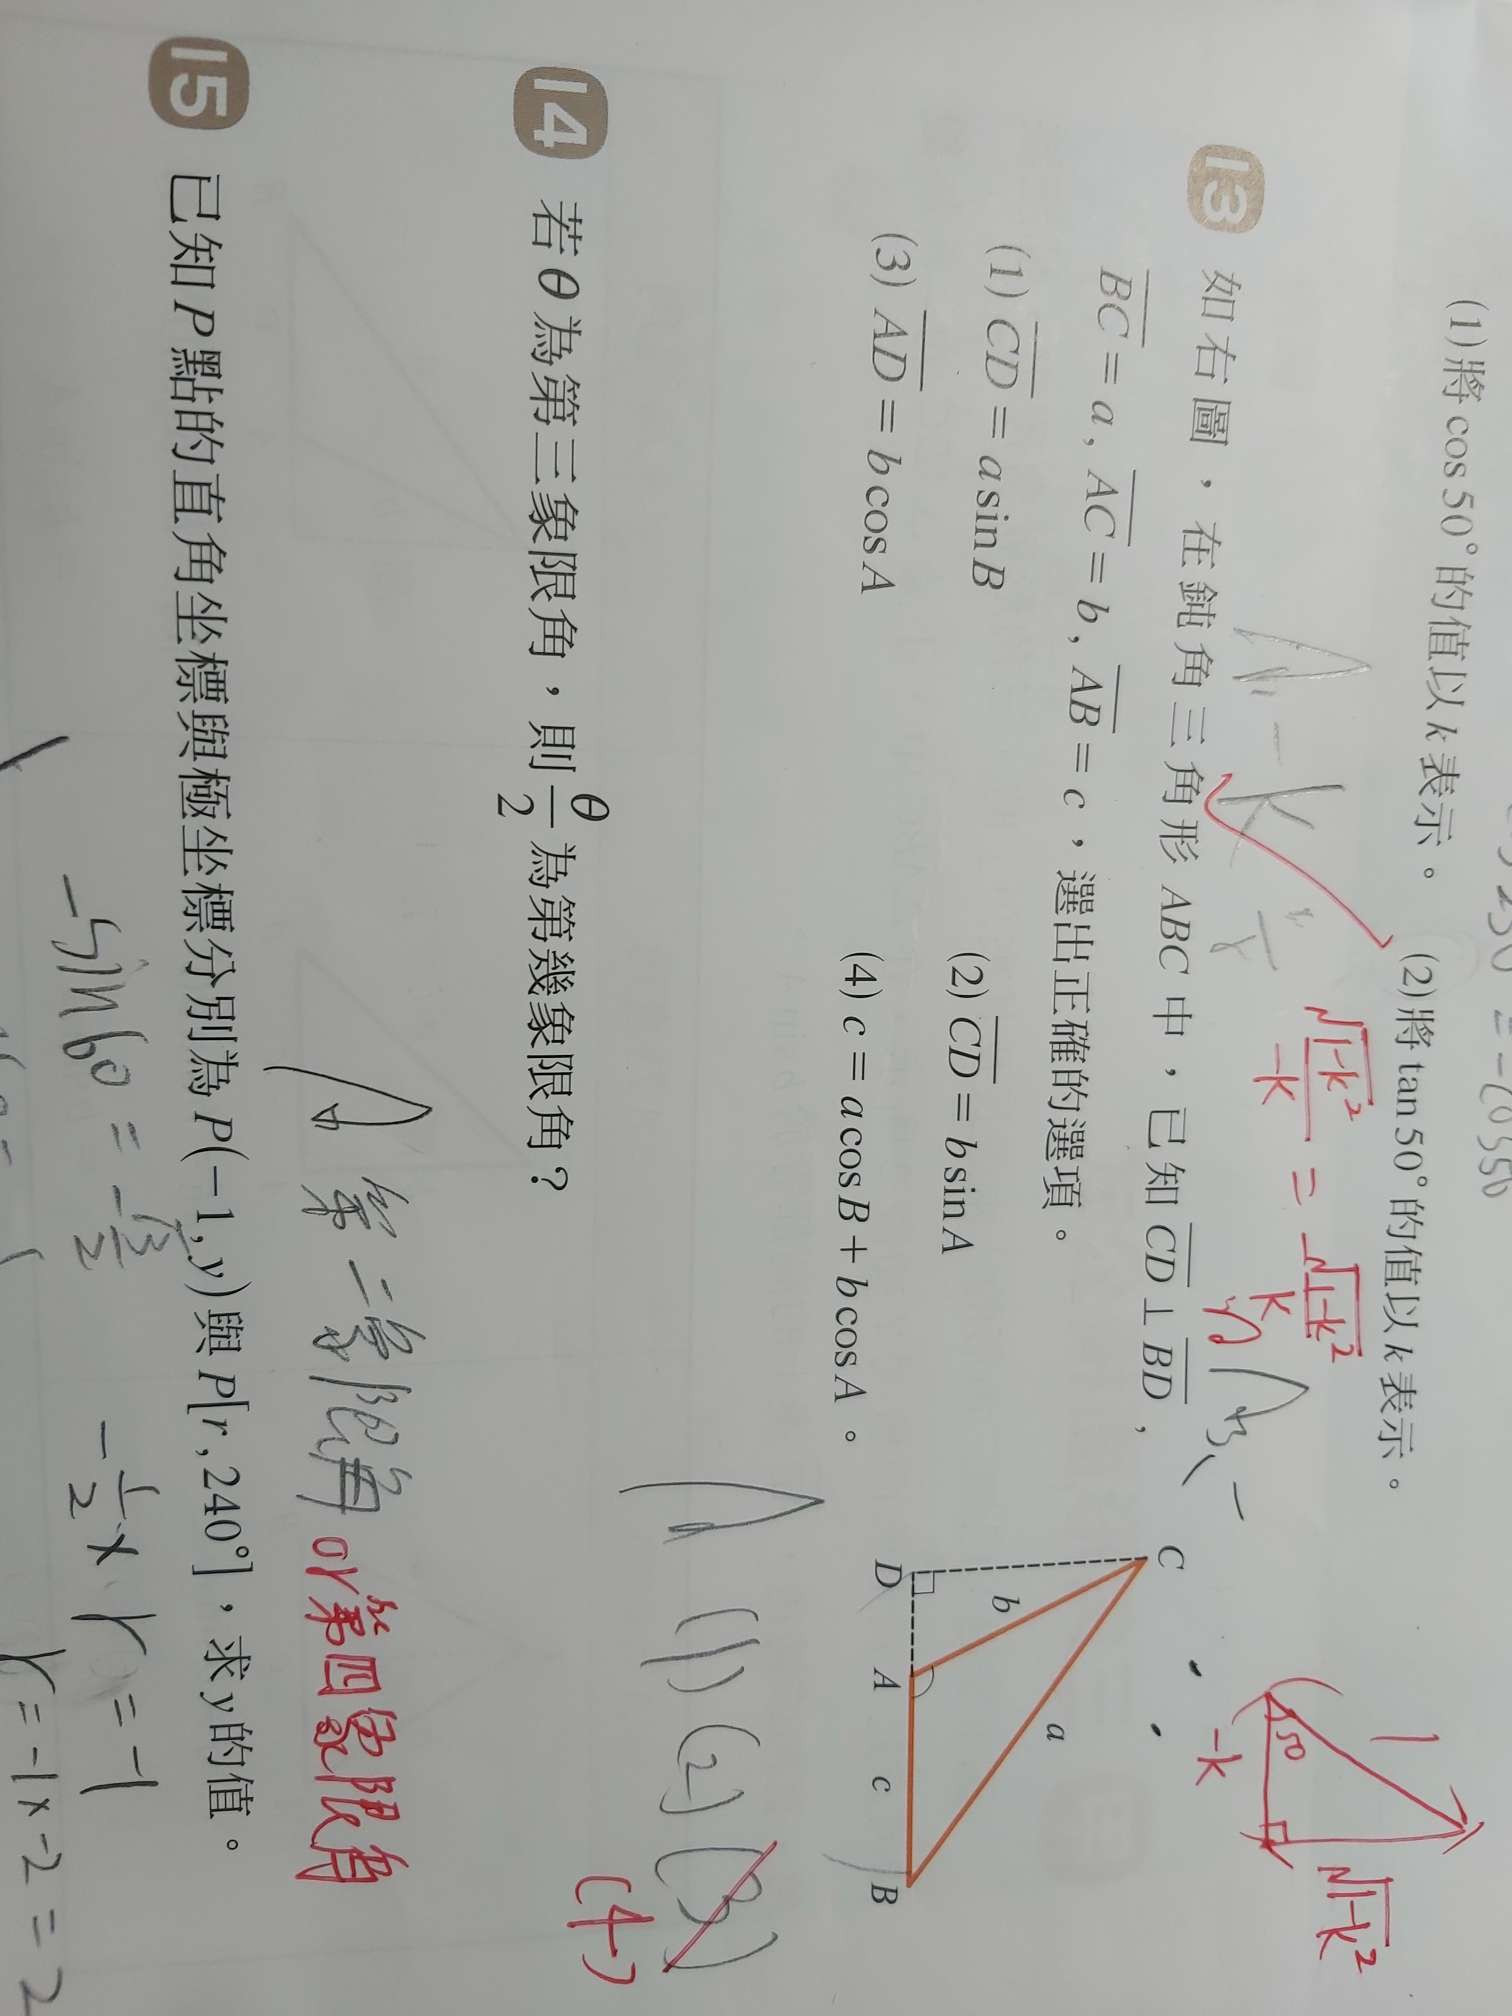 (1)將cos50°的值以k表示。 (2)將tan50°的值以k表示。
√1-k² / -k = -√1-k² / k
1
50
-k
√1-k²
13 如右圖，在鈍角三角形ABC中，已知CD⊥BD，
BC=a, AC=b, AB=c，選出正確的選項。
(1) CD=asinB (2) CD=bsinA
(3) AD=bcosA (4) c=acosB+bcosA。
C
b
a
D
A
c
B
A (1) (2) (3)
(4)
14 若θ為第三象限角，則θ/2為第幾象限角？
A 第二象限角 or 第四象限角
15 已知P點的直角坐標與極坐標分別為P(-1,y)與P[r,240°]，求y的值。
-sin60 = -√3/2 -1/2 × r = -1
r = -1 × -2 = 2